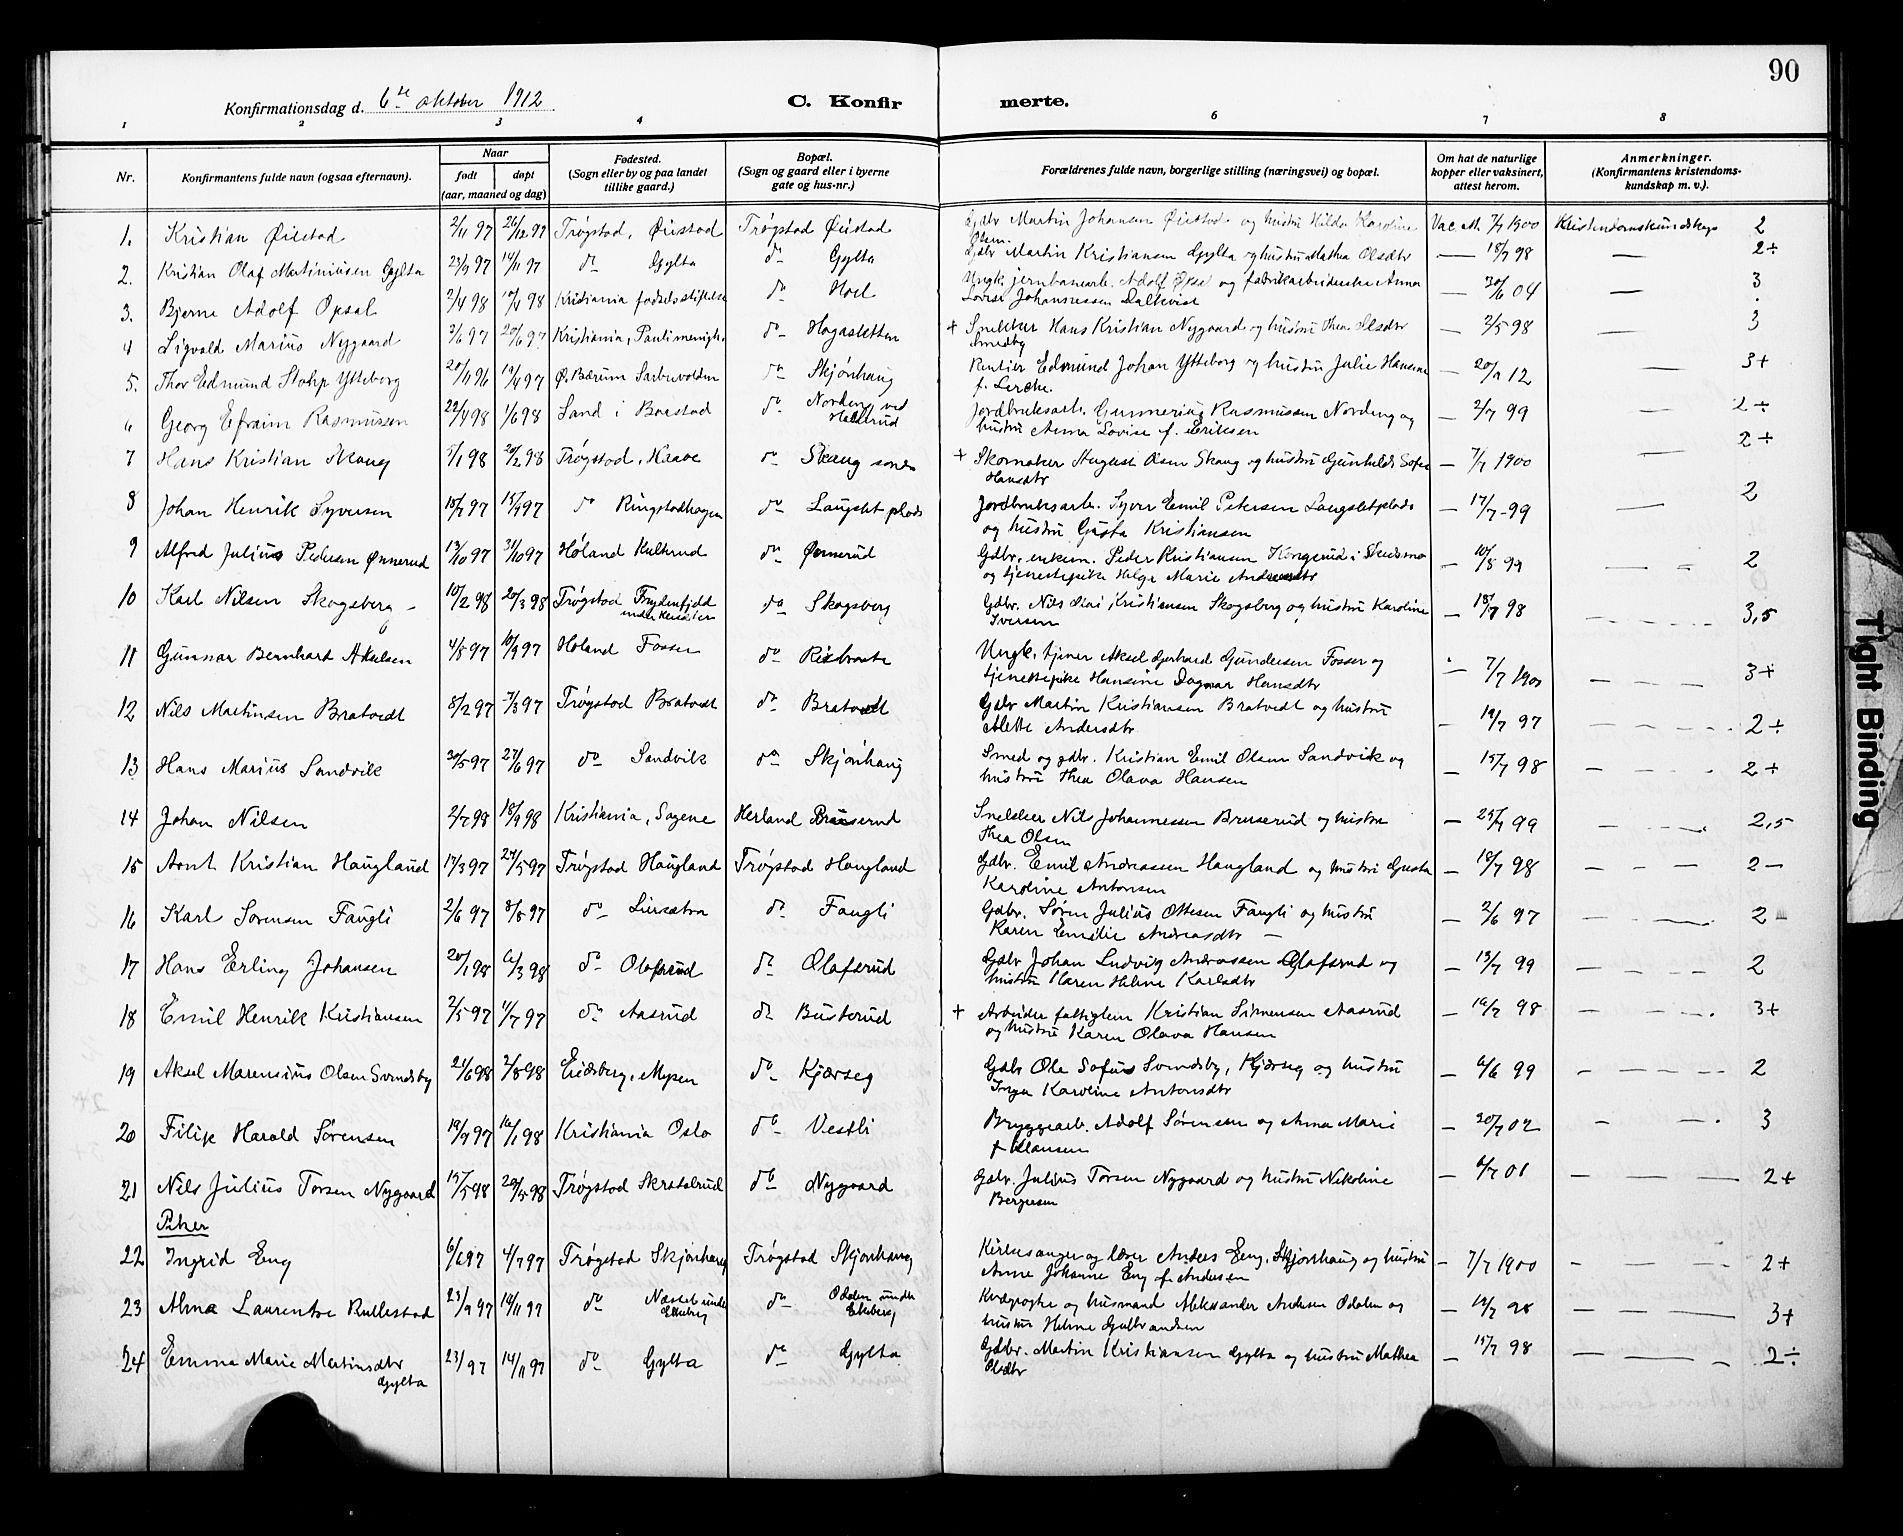 90
Konfirmationsdag d. 6te oktober 1912
C. Konfirmerte.
1 2 3 4 5 6 7 8
Nr. Konfirmantens fulde navn (ogsaa efternavn). Naar født døpt (aar, maaned og dag) Fødested. (Sogn eller by og paa landet tillike gaard.) Bopæl. (Sogn og gaard eller i byerne gate og hus-nr.) Forældrenes fulde navn, borgerlige stilling (næringsvei) og bopæl. Om hat de naturlige kopper eller vaksinert, attest herom. Anmerkninger. (Konfirmantens kristendomskundskap m. v.).
1. Kristian Øiestad 2/11 97 26/12 97 Trøgstad, Øiestad Trøgstad Øiestad Gdbr Martin Johansen Øiestad og hustru Hilda Karoline Olsen Vac. att. 7/7 1900 Kristendomskundskap 2
2. Kristian Olaf Martiniusen Gylta 23/9 97 14/11 97 do Gylta do Gylta Gdbr Martin Kristiansen Gylta og hustru Mathea Olsdtr — 18/7 98 — 2÷
3. Bjerne Adolf Opsal 2/4 98 Kristiania fødselsstiftelse do Hoel Ungk. jernbanearb. Adolf Opsal og fabrikarbeiderske Anna Lovise Johannessen Dalkvist — 30/6 04 — 3
4 Sigvald Marius Nygaard 3/6 97 20/6 97 Kristiania, Paulimenigh. do Hagasletten + Snekker Hans Kristian Nygaard og hustru Thea Olsdtr Smedby — 2/5 98 — 3
5. Thor Edmund Stohp Ytteborg 20/11 96 19/4 97 Ø. Bærum Sarbuvolden do Skjønhaug Rentier Edmund Johan Ytteborg og hustru Julie Hansine f. Lerche. — 12 — 3+
6 Georg Efraim Rasmussen 22/4 98 1/6 98 Sand i Borstad do Nording ved Heldrud Jordbruksarb. Gunnerius Rasmussen Nording og hustru Anna Lovise f. Eriksen — 2/7 99 — 2÷
7 Hans Kristian Skaug 5/1 98 20/2 98 Trøgstad, Haave do Skaug + Skomaker August Olsen Skaug og hustru Gunhilds Sofie Hansdtr — 7/7 1900 — 2+
8 Johan Henrik Syversen 18/7 97 15/9 97 do Ringstadhagen do Laugslet plads Jordbruksarb. Syver Emil Petersen Laugsletplads og hustru Gusta Kristiansen — 17/7 -99 — 2
9 Alfred Julius Pedersen Ønnerud 13/10 97 31/10 97 Høland Kultrud do Ønnerud Gdbr. enkem. Peder Kristiansen Kongerud i Skedsmo og tjenestepike Helga Marie Andersdtr — 10/8 99 — 2
10 Karl Nilsen Skogsberg 10/2 98 20/3 98 Trøgstad Frydenfjeld under do Skogsberg Gdbr. Nils Kristiansen Skogsberg og hustru Karoline Iversen — 18/7 98 — 3,5
11 Gunnar Bernhard Akselsen 4/8 97 10/9 97 Høland Fosser do Risbraate Ungk. tjener Aksel Gerhard Gundersen Fosser og tjenestepike Hansine Dagmar Hansdtr — 7/7 1900 — 3+
12 Nils Martinsen Bratvedt 8/2 97 7/3 97 Trøgstad Bratvedt do Bratvedt Gdbr Martin Kristiansen Bratvedt og hustru Alette Andersdtr — 19/7 97 — 2÷
13 Hans Marius Sandvik 30/5 97 27/6 97 do Sandvik do Skjønhaug Smed og gdbr. Kristian Emil Olsen Sandvik og hustru Thea Olava Hansen — 15/7 98 — 2+
14 Johan Nilsen 2/7 98 18/9 98 Kristiania, Sagene Herland Bruserud Snekker Nils Johannessen Bruserud og hustru Thea Olsen — 25/7 99 — 2,5
15 Arnt Kristian Haugland 17/3 97 27/5 97 Trøgstad Haugland Trøgstad Haugland Gdbr. Emil Andreassen Haugland og hustru Gusta Karoline Antonsen — 18/7 98 — 2—
16 Karl Sørensen Faugli 2/6 97 8/8 97 do Lirsætra do Faugli Gdbr. Søren Julius Ottesen Faugli og hustru Karen Emilie Andreasdtr — 2/6 97 — 2
17 Hans Erling Johansen 20/1 98 6/3 98 do Olafsrud do Olafsrud Gdbr Johan Ludvig Andreassen Olafsrud og hustru Maren Helene Karlsdtr — 13/7 99 — 2
18 Emil Henrik Kristiansen 2/5 97 4/7 97 do Aasrud do Busterud + Arbeider fattiglem Kristian Simensen Aasrud og hustru Karen Olava Hansen — 19/7 98 — 3+
19 Aksel Marensius Olsen Svendsby 21/6 98 7/8 98 Eidsberg, Mysen do Kjærseg Gdbr Ole Sofus Svendsby, Kjærseg og hustru Inga Karoline Antonsdtr — 6/6 99 — 2
20 Filip Harald Sørensen 19/9 97 16/1 98 Kristiania Oslo do Vestli Bryggearb. Adolf Sørensen og Anna Marie f. Klausen — 20/7 02 — 3
21 Nils Julius Torsen Nygaard 15/5 98 29/5 98 Trøgstad Skratelrud do Nygaard Gdbr. Julius Torsen Nygaard og hustru Nikoline Bergersen — 6/7 01 — 2+
Piker
22 Ingrid Eng 6/6 97 4/7 97 Trøgstad Skjønhaug Trøgstad Skjønhaug Kirkesanger og lærer Anders Eng, Skjønhaug og hustru Anne Johanne Eng f. Andersen — 7/7 1900 — 2+
23 Alma Laurentse Rullestad 23/9 97 14/11 97 do Næsset under Ekeberg do Odden under Ekeberg Kvægrøgter og husmand Aleksander Andersen Odden og hustru Helene Gulbrandsen — 19/7 98 — 3+
24 Emma Marie Martinsdtr Gylta 23/9 97 14/11 97 do Gylta do Gylta Gdbr. Martin Kristiansen Gylta og hustru Mathea Olsdtr — 15/7 98 — 2÷
Tight Binding